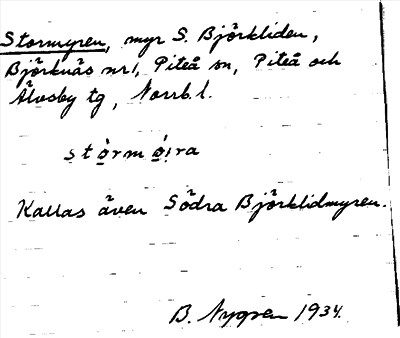 Stormyren, myr S. Björkliden,
Björknäs nr 1, Piteå sn, Piteå och
Älvsby tg, Norrb. l.
stòrmø̀ira
Kallas även Södra Björklidmyren.
B. Nygren 1934.